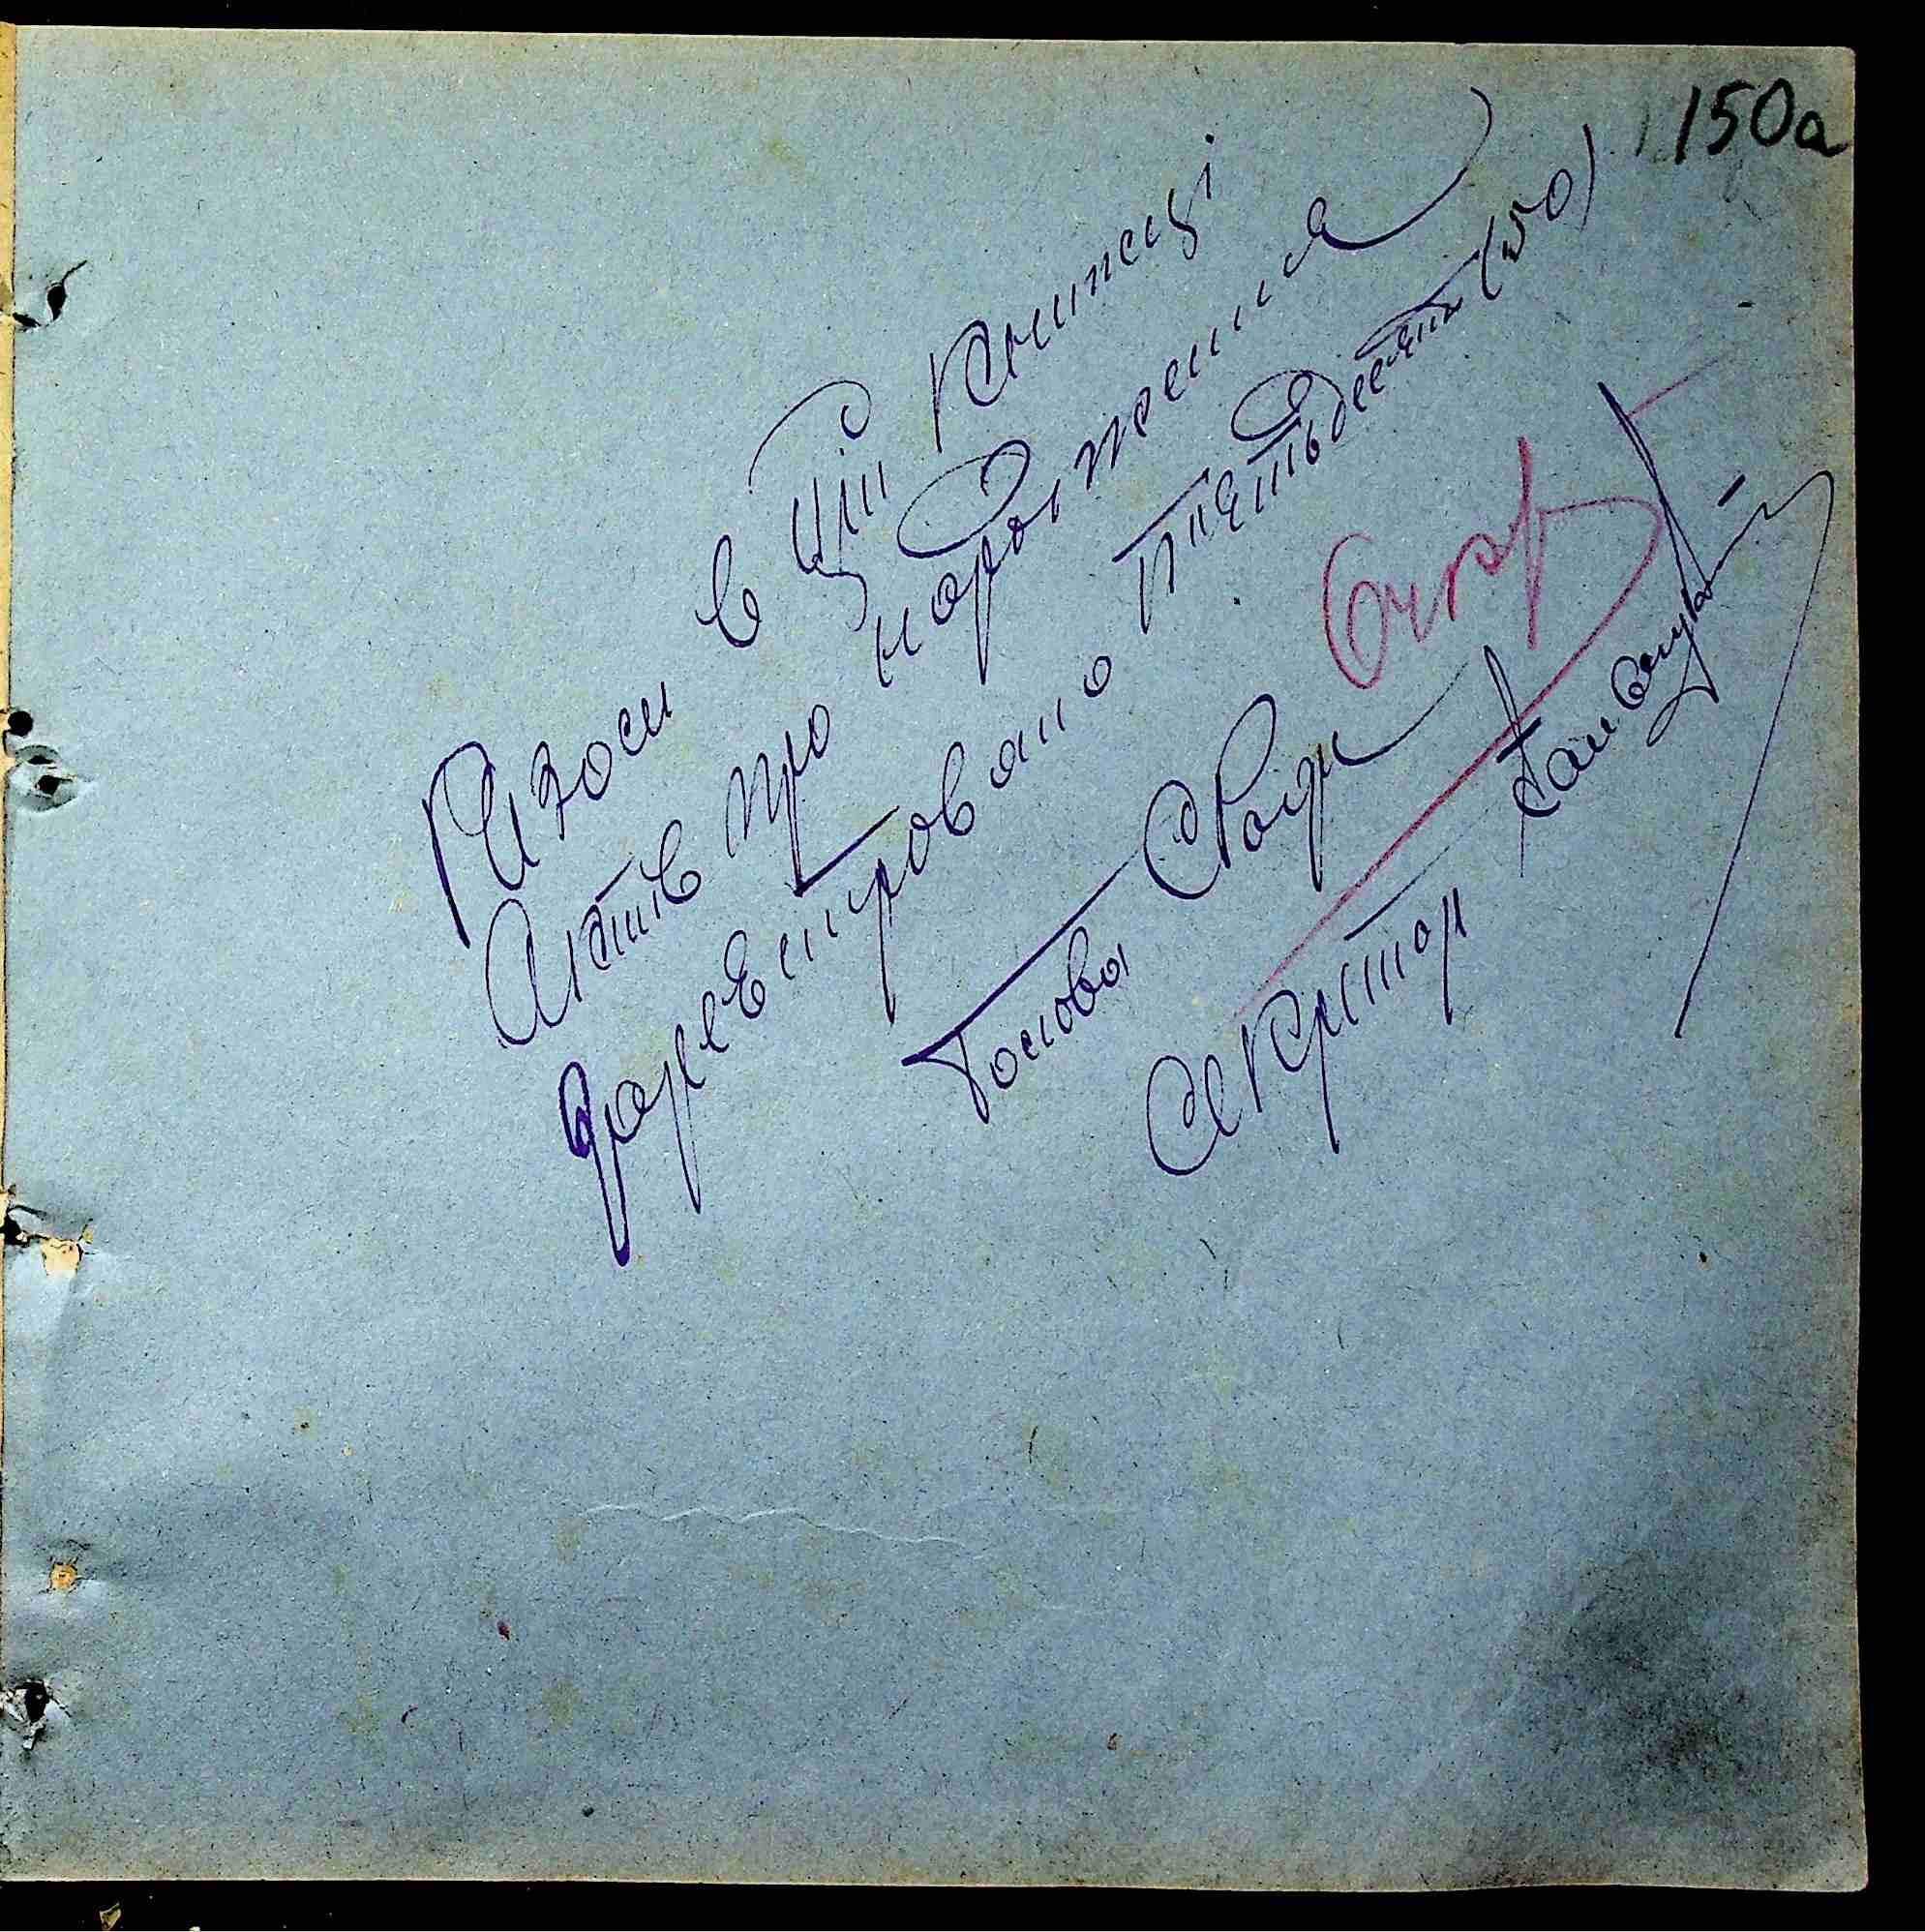 150а
Разом в цій книжці
Актів про народження
зареестровано пятьдесять (50)
Голова С/Ради
Секретар